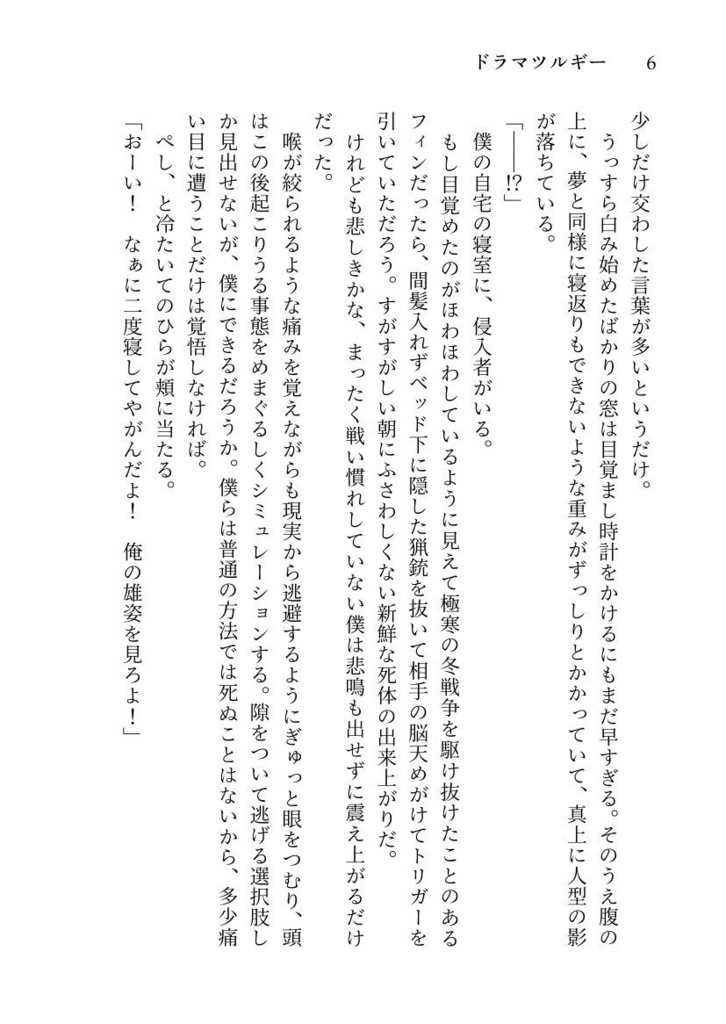 ドラマツルギー　6
少しだけ交わした言葉が多いというだけ。
　うっすら白み始めたばかりの窓は目覚まし時計をかけるにもまだ早すぎる。そのうえ腹の
上に、夢と同様に寝返りもできないような重みがずっしりとかかっていて、真上に人型の影
が落ちている。
「――!?」
　僕の自宅の寝室に、侵入者がいる。
　もし目覚めたのがほわほわしているように見えて極寒の冬戦争を駆け抜けたことのある
フィンだったら、間髪入れずベッド下に隠した猟銃を抜いて相手の脳天めがけてトリガーを
引いていただろう。すがすがしい朝にふさわしくない新鮮な死体の出来上がりだ。
　けれども悲しきかな、まったく戦い慣れしていない僕は悲鳴も出せずに震え上がるだけ
だった。
　喉が絞られるような痛みを覚えながらも現実から逃避するようにぎゅっと眼をつむり、頭
はこの後起こりうる事態をめまぐるしくシミュレーションする。隙をついて逃げる選択肢し
か見出せないが、僕にできるだろうか。僕らは普通の方法では死ぬことはないから、多少痛
い目に遭うことだけは覚悟しなければ。
　ぺし、と冷たいてのひらが頬に当たる。
「おーい！　なぁに二度寝してやがんだよ！　俺の雄姿を見ろよ！」